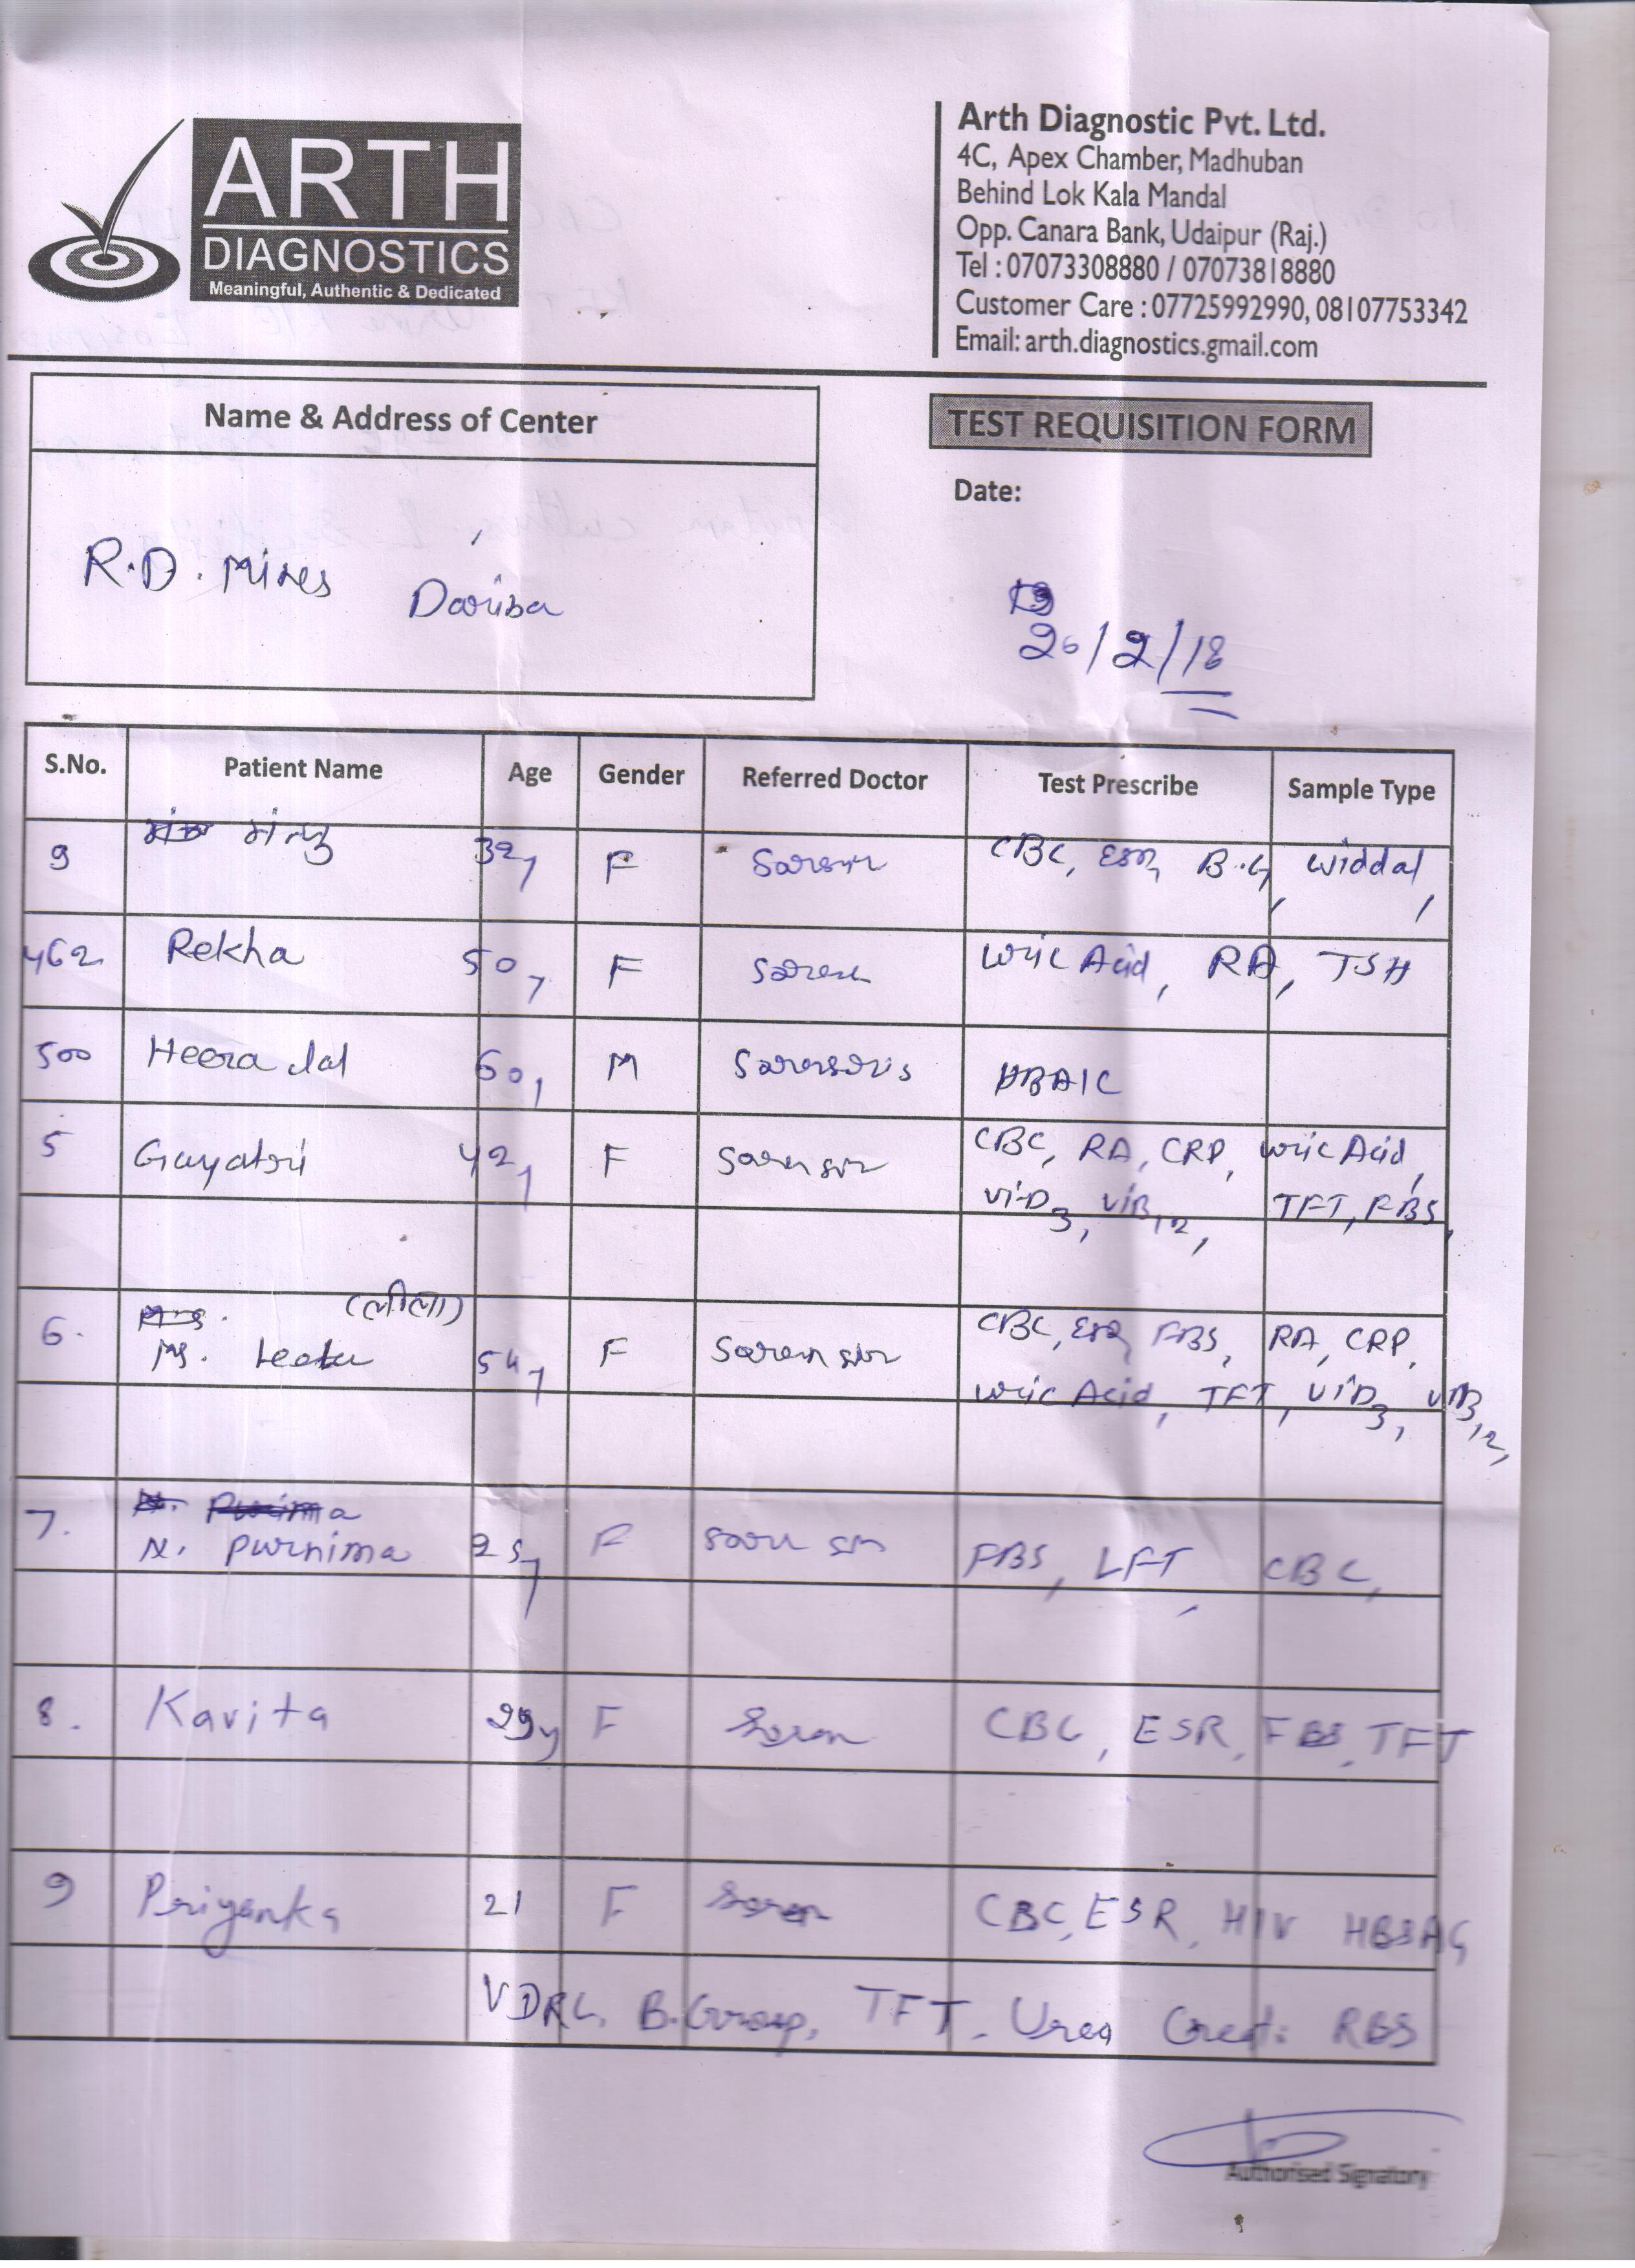 ARTH
DIAGNOSTICS
Meaningful, Authentic & Dedicated
Arth Diagnostic Pvt. Ltd.
4C, Apex Chamber, Madhuban
Behind Lok Kala Mandal
Opp. Canara Bank, Udaipur (Raj.)
Tel : 07073308880 / 07073818880
Customer Care : 07725992990, 08107753342
Email: arth.diagnostics.gmail.com
Name & Address of Center
TEST REQUISITION FORM
Date:
R.D. Mines Dariba
20/2/18
S.No. Patient Name Age Gender Referred Doctor Test Prescribe Sample Type
9 32y F CBC, ESR, B.G, Widdal,
462 Rekha 50y F Uric Acid, RA, TSH
500 Heera Lal 60y M HBA1C
5 Gayatri 42y F Saren sir CBC, RA, CRP, Uric Acid,
Vi-D3, ViB12, TFT, FBS,
6. (लीला)
Ms. Leela 54y F Saren sir CBC, ESR, FBS, RA, CRP,
Uric Acid, TFT, ViD3, ViB12,
7. N. Purnima 25y F FBS, LFT, CBC,
8. Kavita 29y F Soren CBC, ESR, FBS, TFT
9 Priyanka 21 F Soren CBC, ESR, HIV HBSAG
VDRL, B.Group, TFT, Urea Creat: RBS
Authorised Signatory